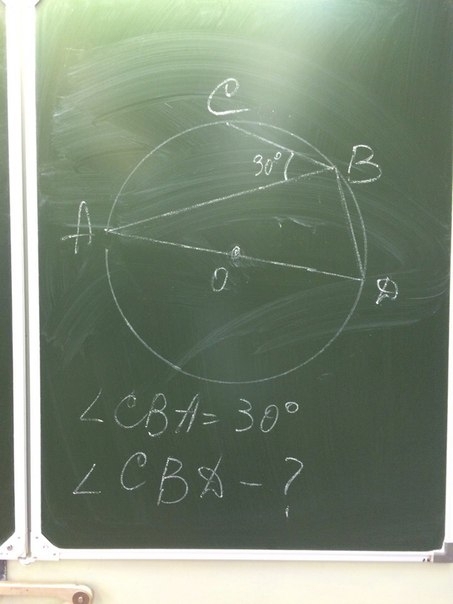 C
30°
B
A
O
D
∠CBA=30°
∠CBD-?